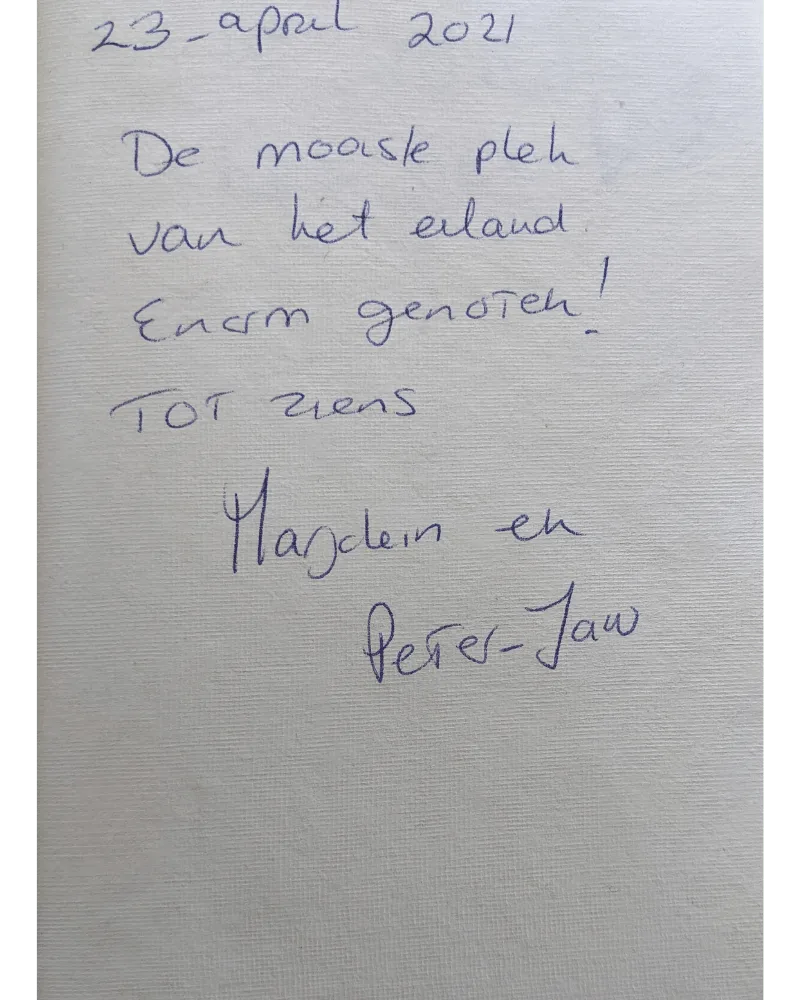 23-april 2021
De mooiste plek
van het eiland.
Enorm genoten!
TOT ziens
Marjolein en
Peter-Jaw